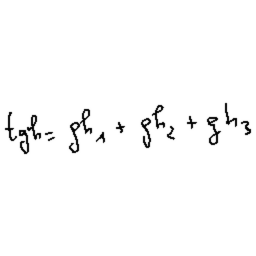 tgh = gh₁ + gh₂ + gh₃